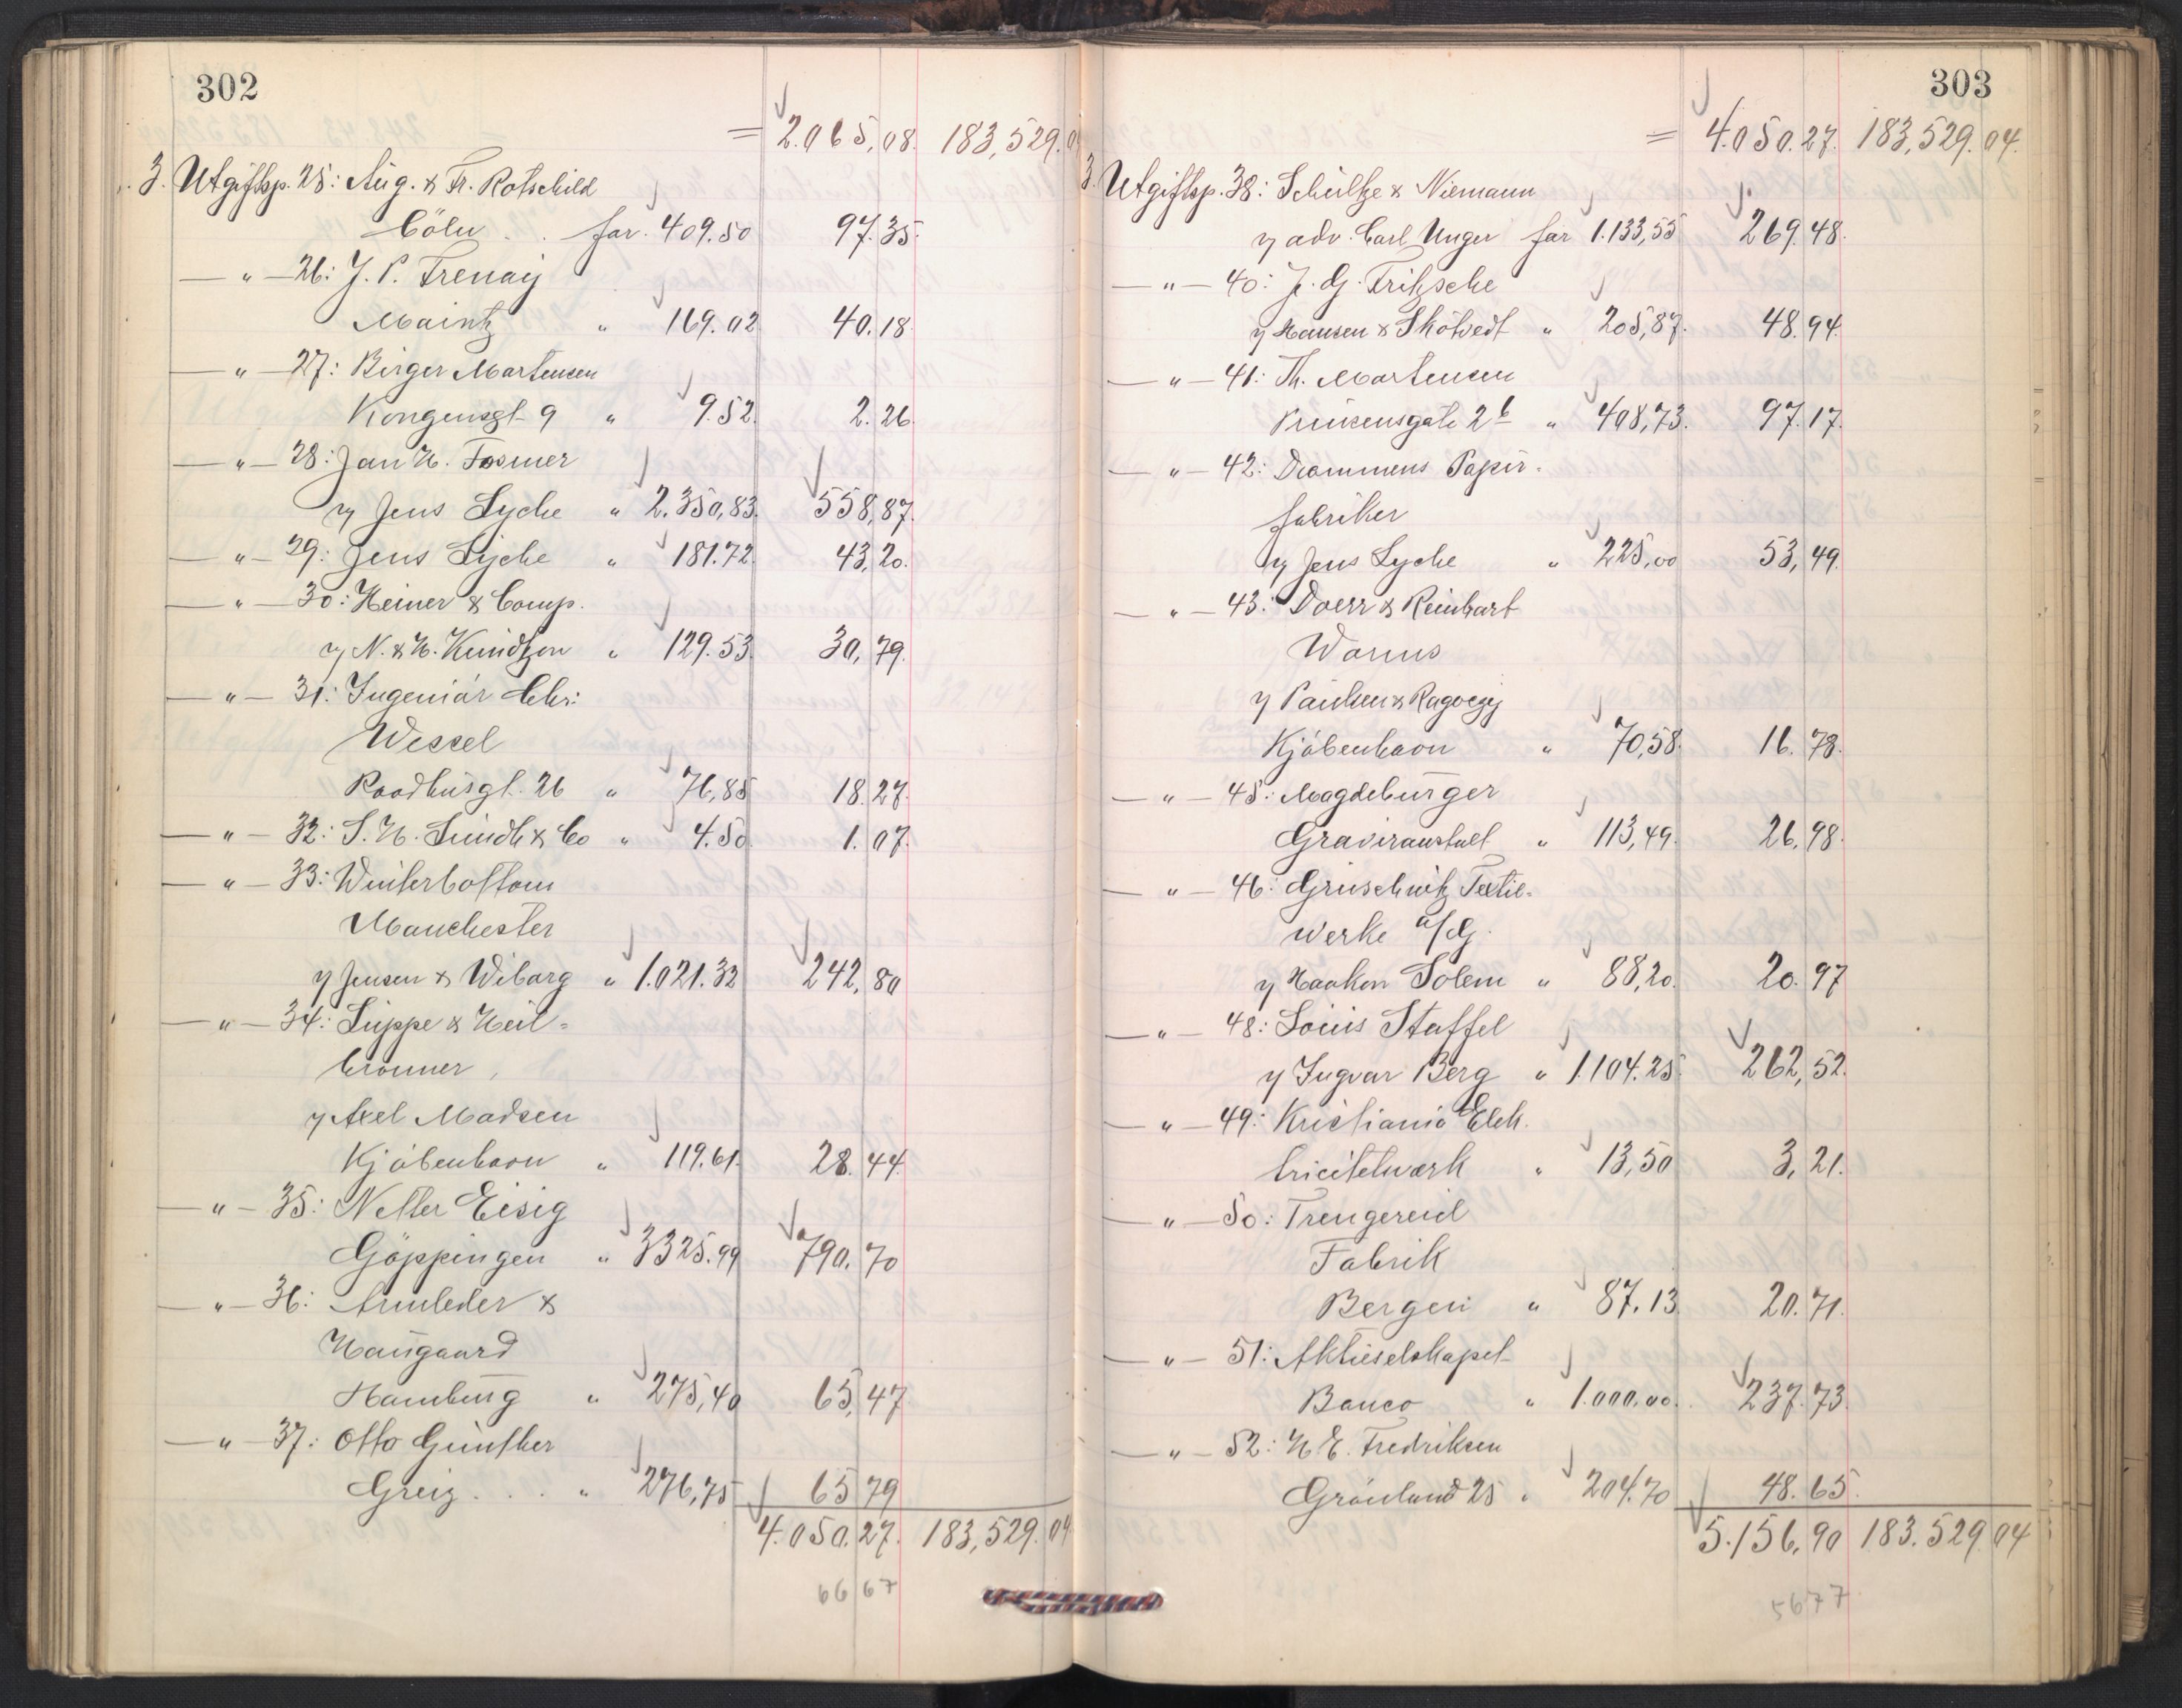 302
= 2.065,08. 183,529.0
3. Utgiftsp. 25: Aug. & Fr. Rotschild
Cöln . . for. 409.50 97.35.
— " — 26: J. P. Trenay
Maintz " 169.02 40.18
— " — 27: Birger Martensen
Kongensgt. 9 " 9.52. 2.26.
— " — 28: Jan H. Fosmer
v/ Jens Lyche " 2.350,83. 558,87.
— " — 29: Jens Lyche " 181.72. 43,20.
— " — 30: Heiner & Comp.
v/ N. & H. Kundtzon " 129.53. 30,79.
— " — 31: Ingeniør Chr:
Wessel
Raadhusgt. 26 " 76,85 18.27.
— " — 32: S. H. Lundh & Co " 4.50 1.07.
— " — 33: Winterbottom
Manchester
v/ Jensen & Wiborg " 1.021.32 242,80
— " — 34: Luppe & Heil-
bronner,
v/ Axel Madsen
Kjøbenhavn " 119.61. 28.44.
— " — 35: Netter Eisig
Göppingen " 3325.99 790.70
— " — 36: Armleder &
Haugaard
Hamburg " 275,40 65,47.
— " — 37: Otto Günther
Greiz . . . " 276,75 65 79
4.050.27. 183,529.04
66 67
303
= 4.050.27. 183,529.04.
3. Utgiftsp. 38: Schultze & Niemann
v/ adv. Carl Unger for 1.133,55 269.48.
— " — 40: J. G. Fritzsche
v/ Hansen & Skotvedt " 205,87. 48.94.
— " — 41: Th. Martensen
Prinsensgate 2b " 408,73. 97.17.
— " — 42: Drammens Papir-
fabriker
v/ Jens Lyche " 225,00 53,49.
— " — 43: Doerr & Reinhart
Worms
v/ Paulsen & Ragoczy
Kjøbenhavn " 70,58. 16.78.
— " — 45: Magdeburger
Graviranstalt " 113,49. 26,98.
— " — 46: Gruschwitz Textil-
werke a/G.
v/ Haakon Solem " 88,20. 20.97
— " — 48: Louis Staffel
v/ Ingvar Berg " 1.104.25. 262,52.
— " — 49: Kristiania Elek-
tricitetværk " 13,50 3,21.
— " — 50: Trengereid
Fabrik
Bergen " 87.13. 20.71.
— " — 51: Aktieselskapet
Banco " 1.000.00. 237.73.
— " — 52: H. E. Fredriksen
Grønland 25 " 204.70 48.65.
5.156,90 183.529.04
5677